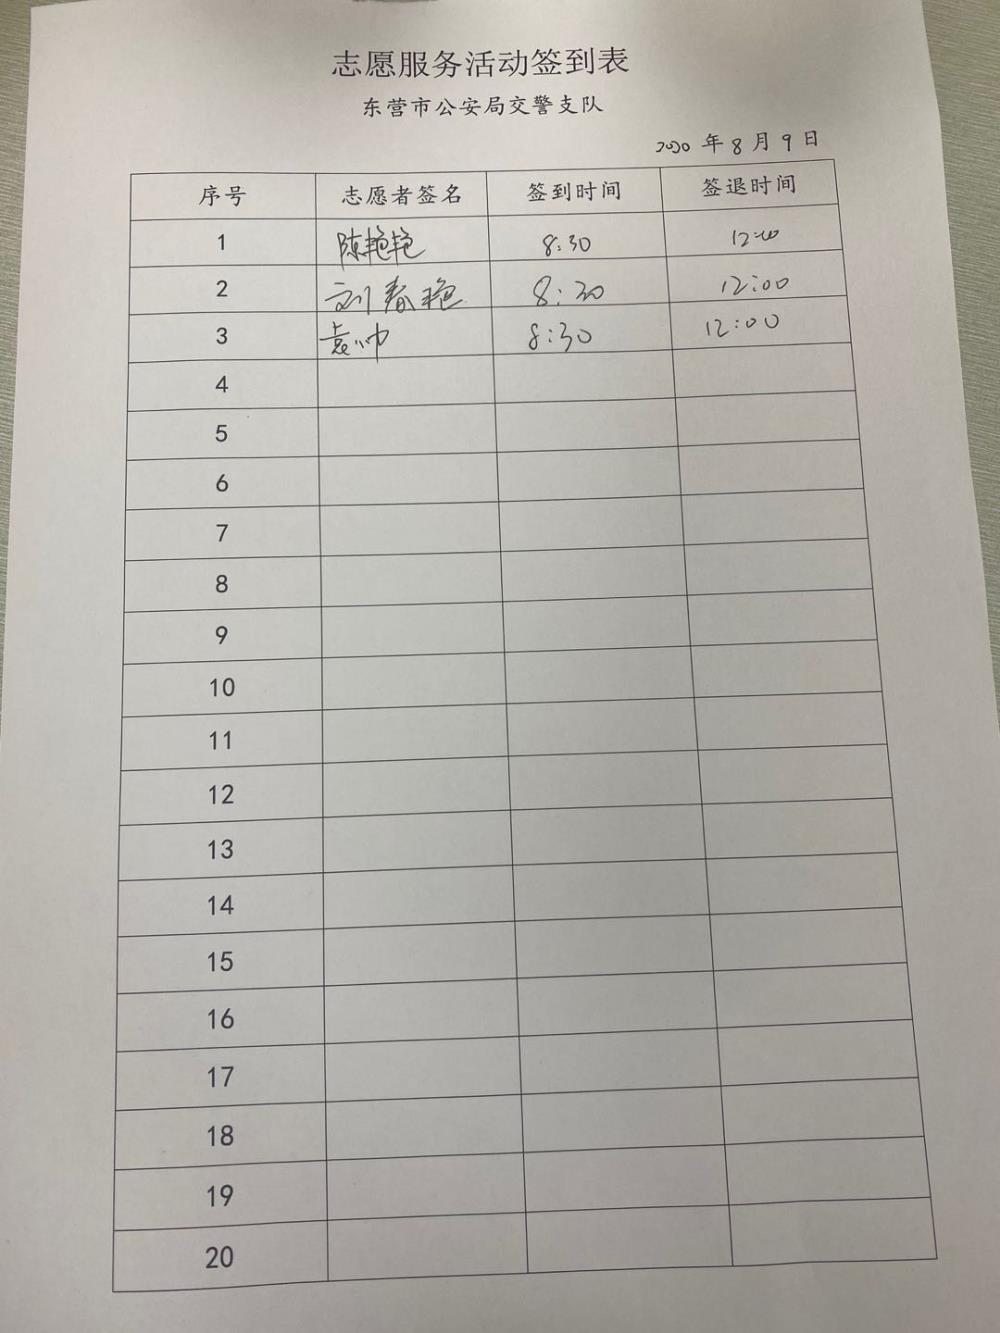 志愿服务活动签到表
东营市公安局交警支队
2020 年 8 月 9 日
序号 志愿者签名 签到时间 签退时间
1 陈艳艳 8:30 12:00
2 刘春艳 8:30 12:00
3 袁帅 8:30 12:00
4
5
6
7
8
9
10
11
12
13
14
15
16
17
18
19
20